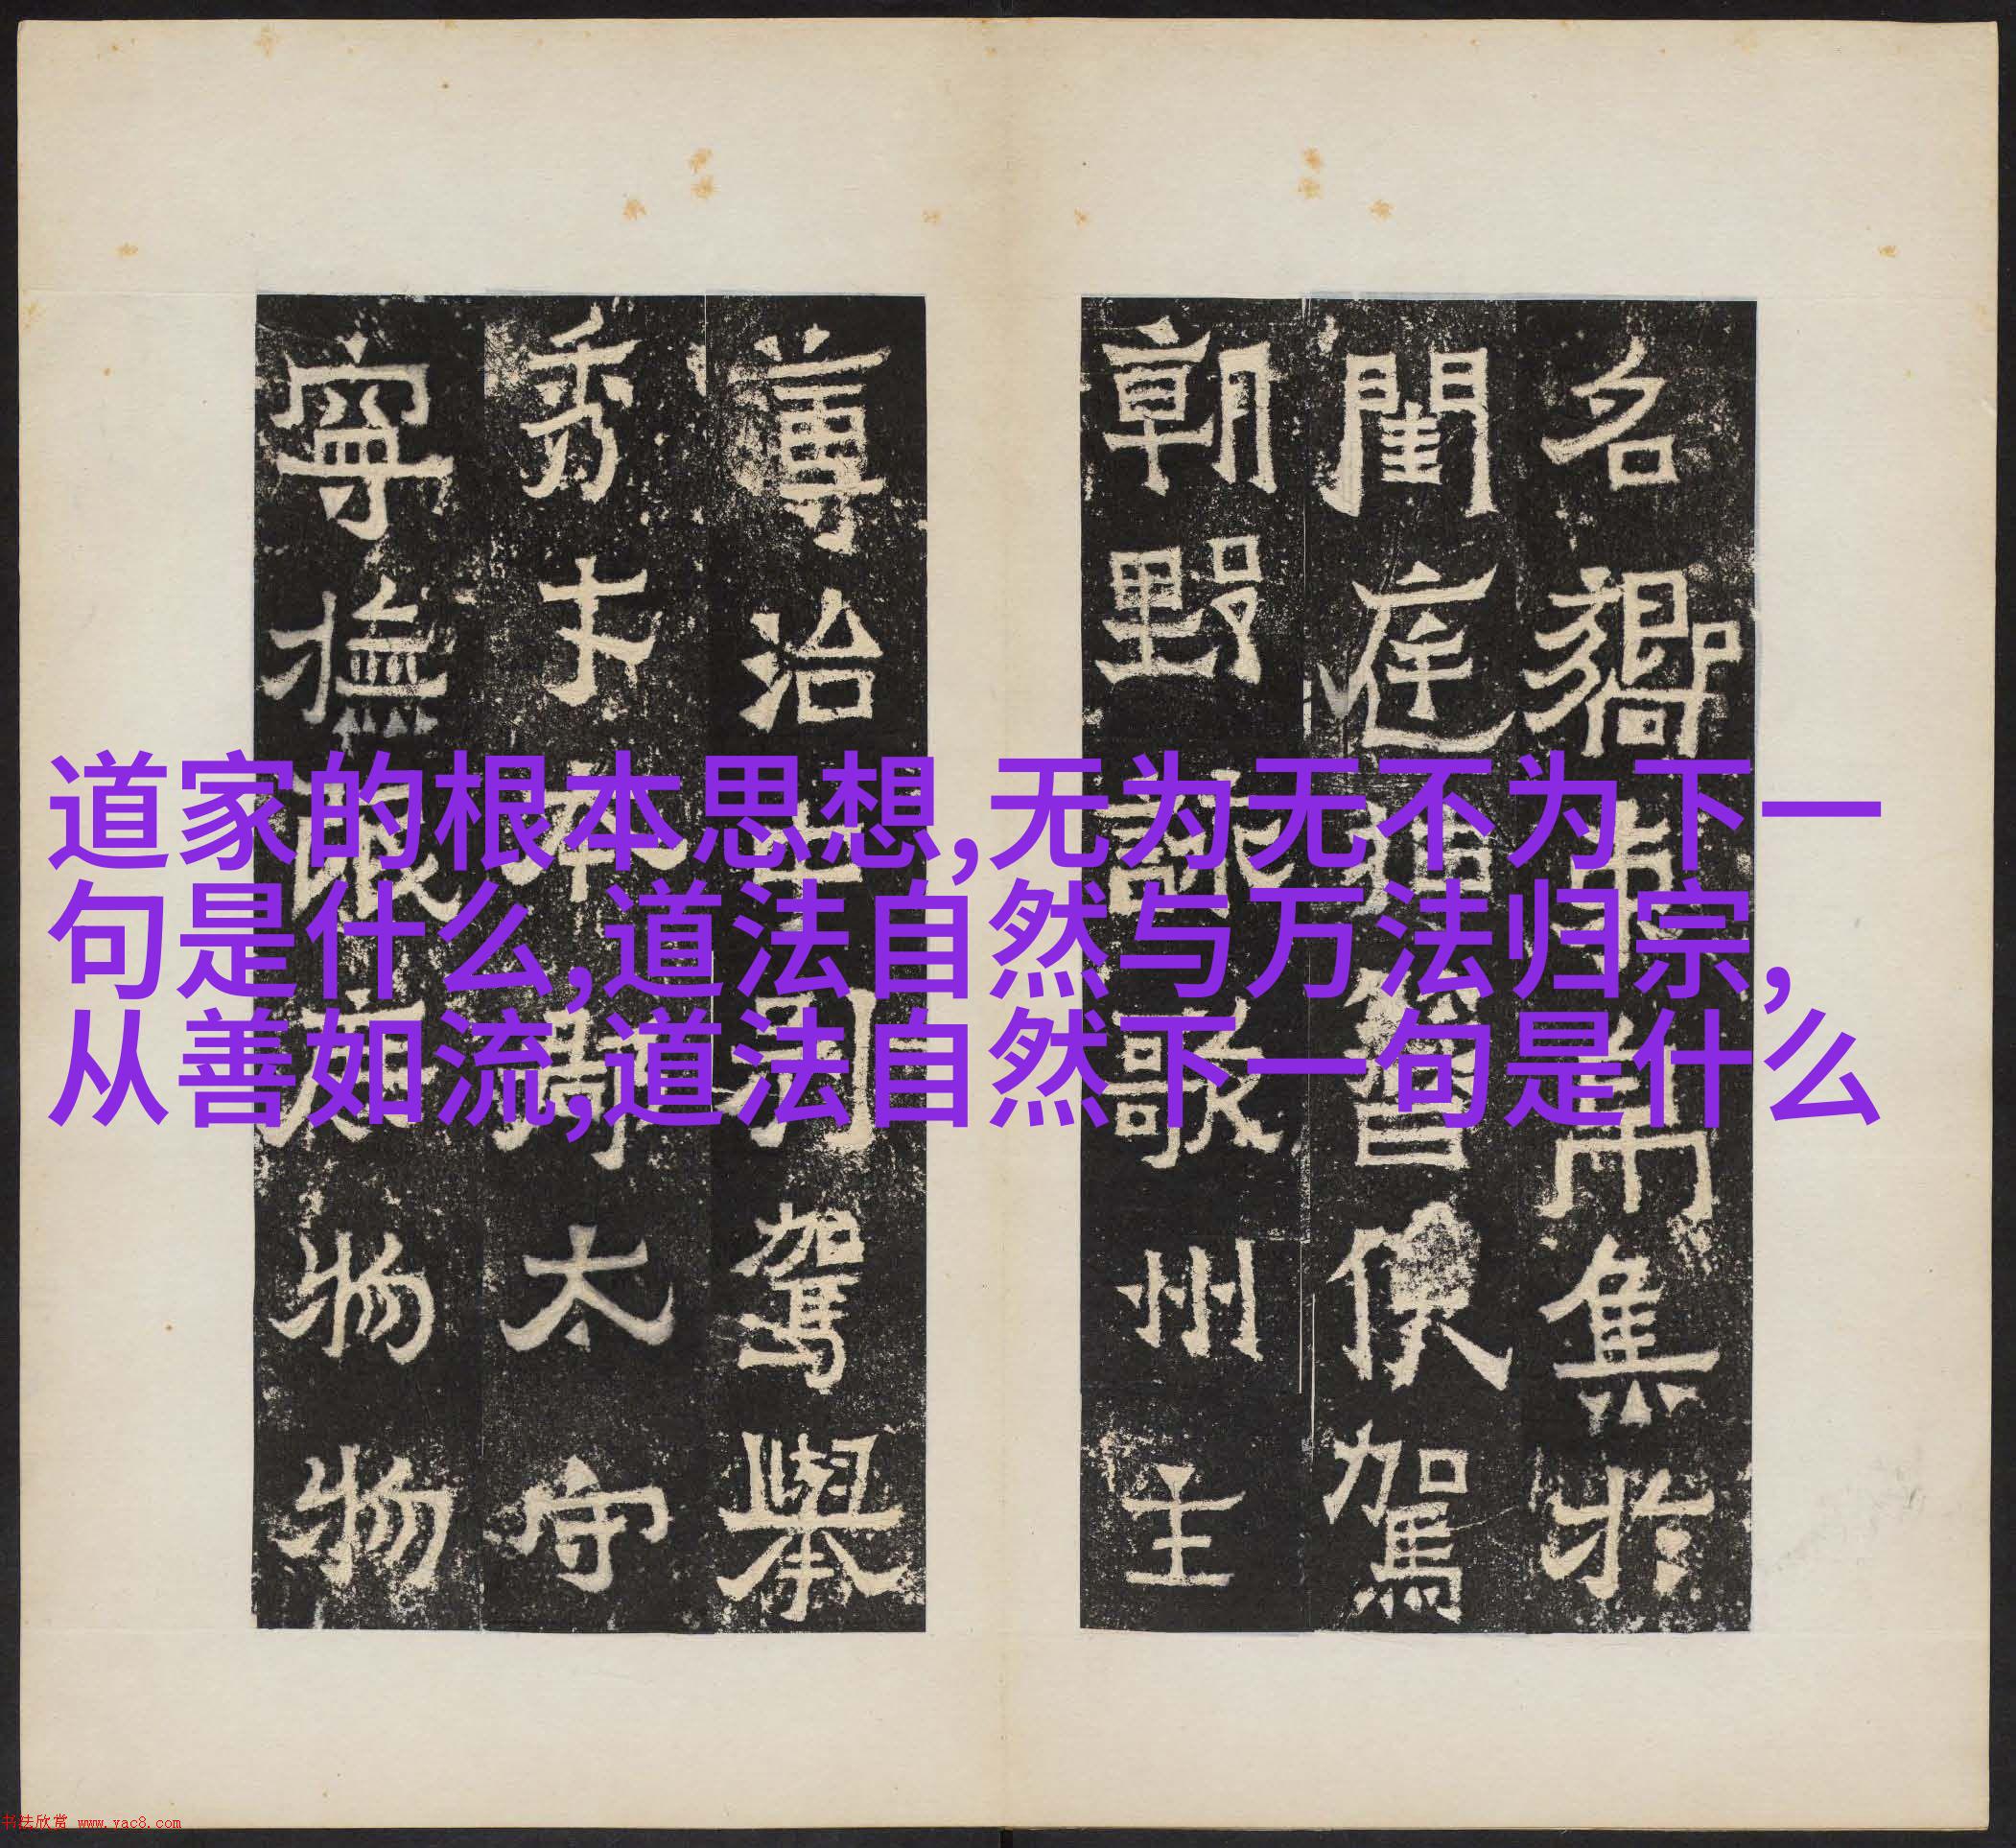 名卿□□集於
閨庭□督僕駕
朝野謳歌州主
導治□列駕舉
秀才本郡太守
寧撫□□物物
道家的根本思想,无为无不为下一
句是什么,道法自然与万法归宗,
从善如流,道法自然下一句是什么
书法欣赏 www.yac8.com